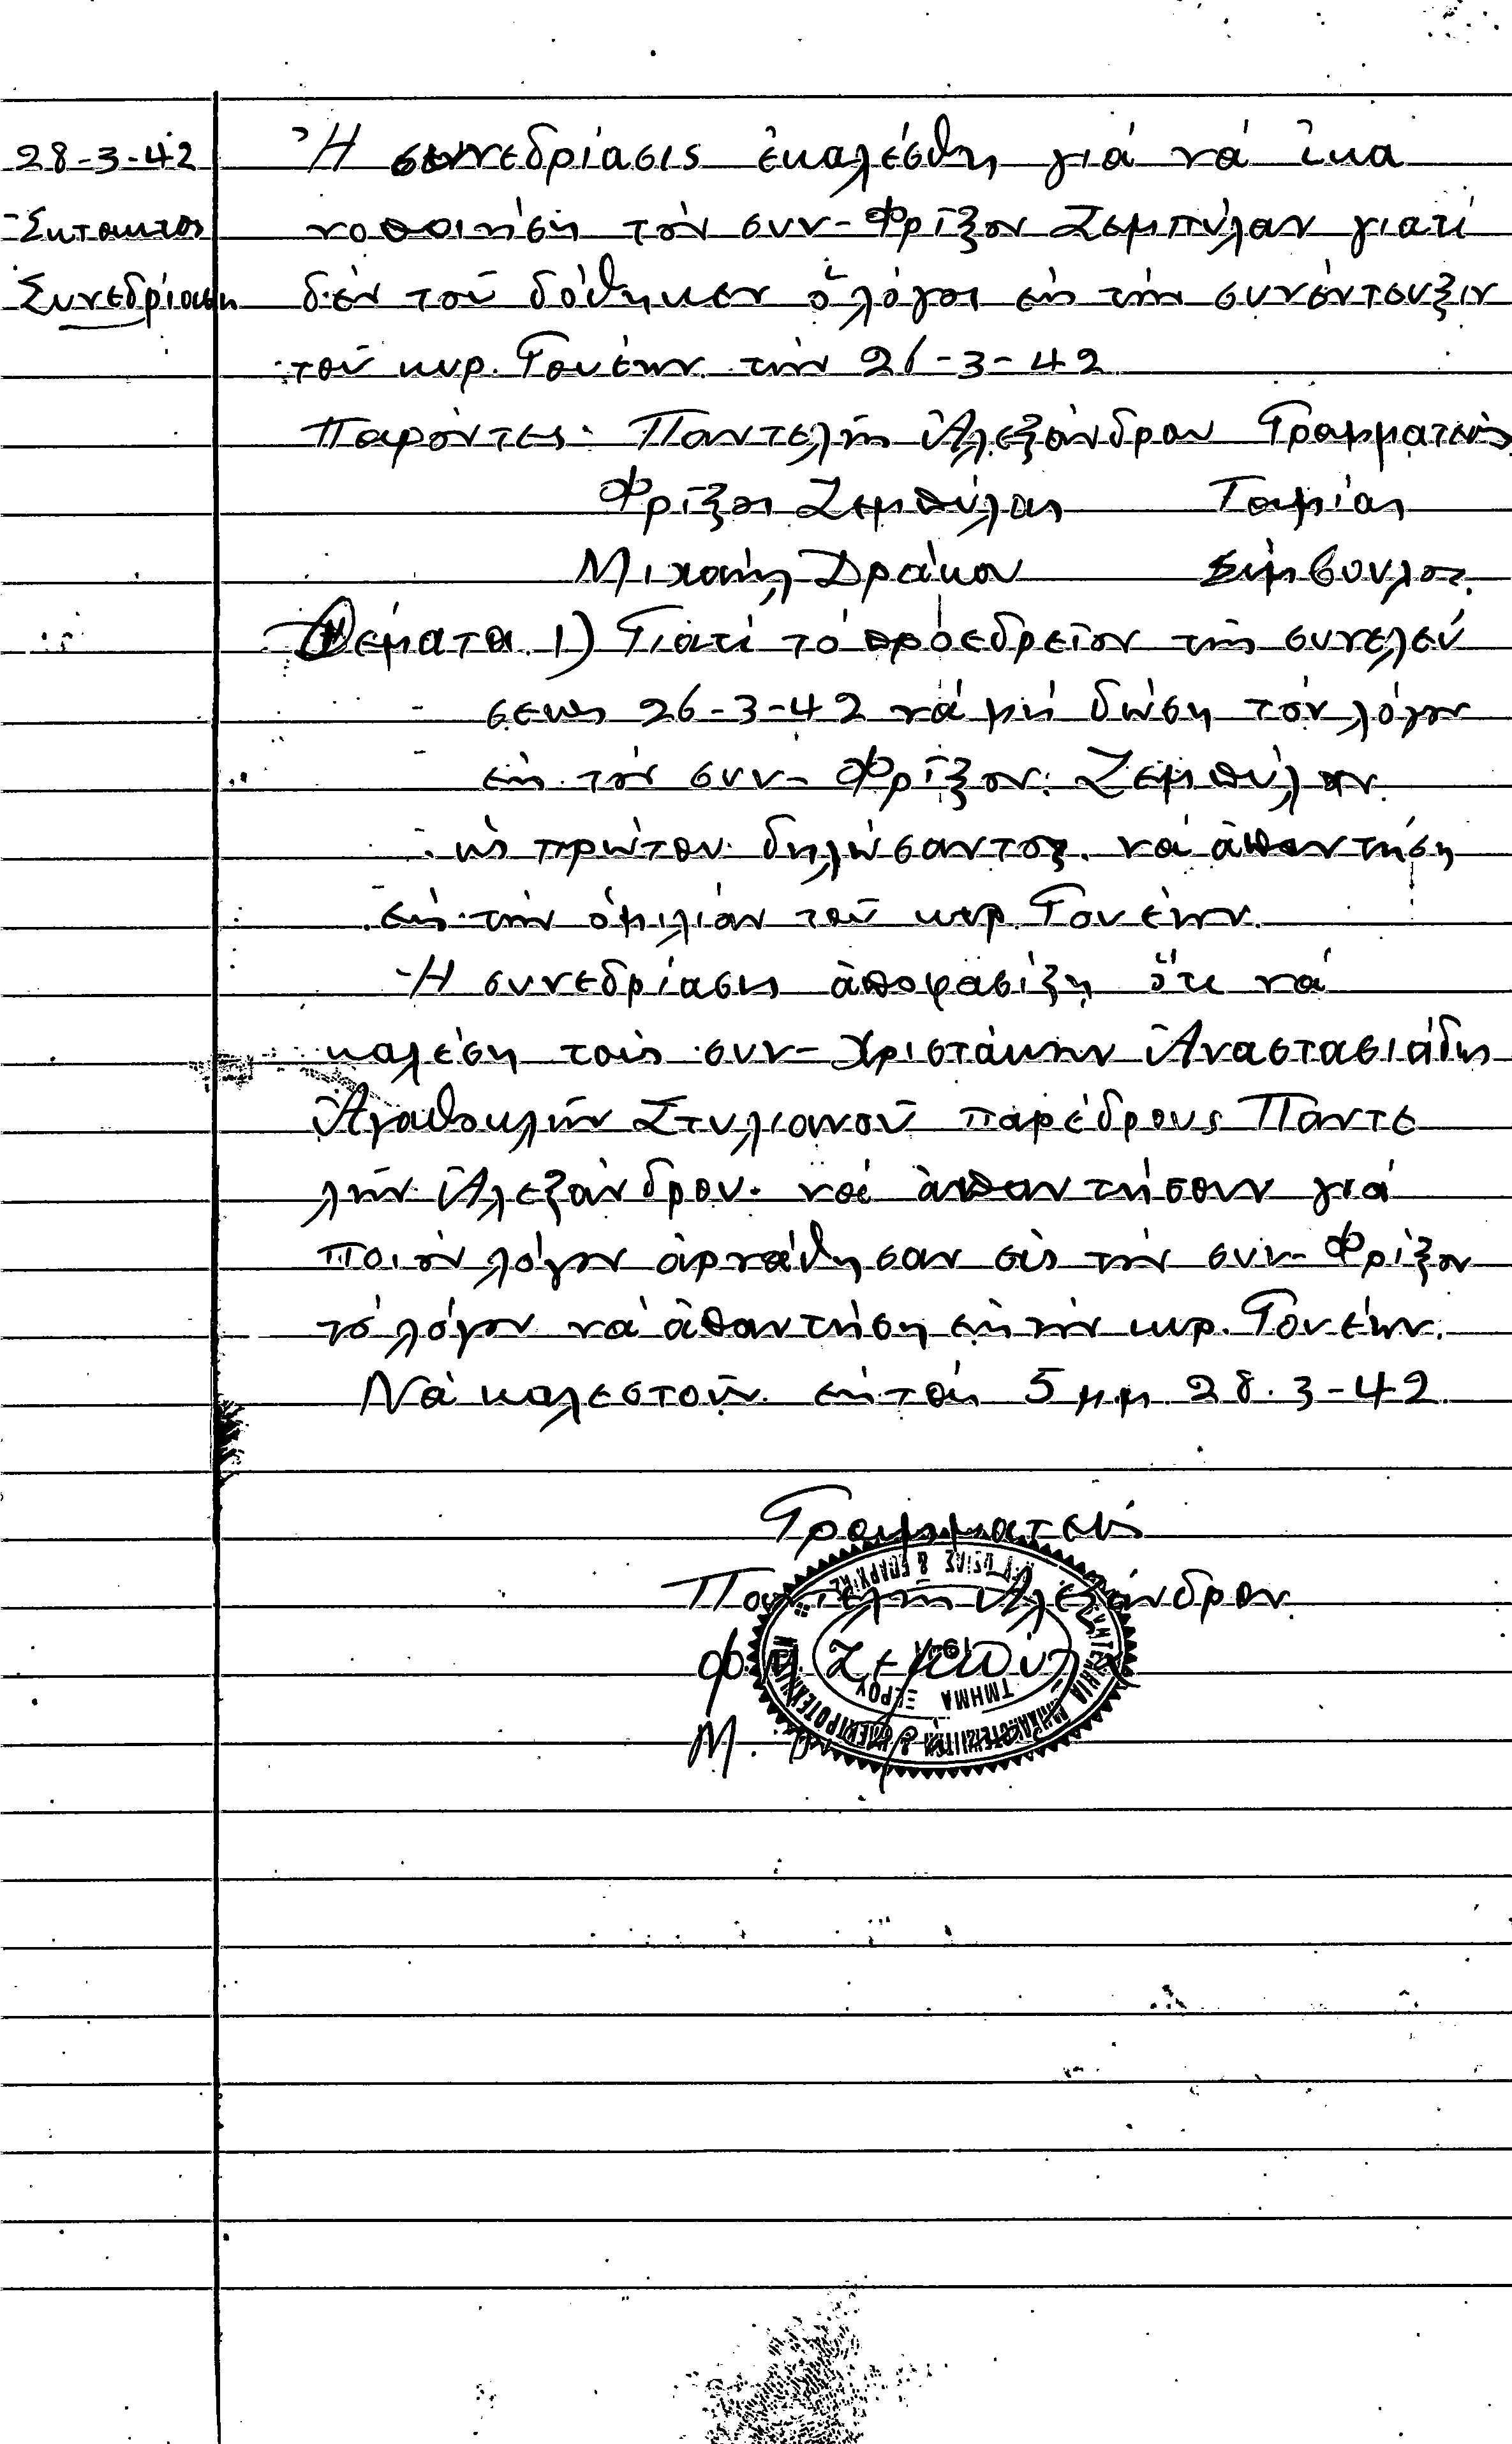 28-3-42
Ἡ συνεδρίασις ἐκαλέσθη γιά νά ἱκα
Ἐκτακτος
νοποιήση τόν συν- Φρίξον Ζεμπύλαν γιατί
Συνεδρίαση
δέν τοῦ δόθηκεν ὁ λόγος εἰς τήν συνέντευξιν
τοῦ κυρ. Γονέων τήν 26-3-42
Παρόντες· Παντελῆς Ἀλεξάνδρου Γραμματεύς
Φρίξος Ζεμπύλας Ταμίας
Μιχαήλ Δράκου Σύμβουλος.
Θέματα 1) Γιατί τό προεδρεῖον τῆς συνελεύ
σεως 26-3-42 νά μή δώση τόν λόγον
εἰς τόν συν- Φρίξον Ζεμπύλαν
ὡς πρώτου δηλώσαντος. νά ἀπαντήση
εἰς τήν ὁμιλίαν τοῦ κυρ. Γονέων.
Ἡ συνεδρίασις ἀποφασίζη ὅτι νά
καλέση τούς συν- Χριστάκην Ἀναστασιάδης
Ἀγαθοκλήν Στυλιανοῦ παρέδρους Παντε
λῆν Ἀλεξάνδρου. νά ἀπαντήσουν γιά
ποιόν λόγον ἀρνήθησαν εἰς τόν συν- Φρίξον
τό λόγον νά ἀπαντήση εἰς τόν κυρ. Γονέων.
Νά καλεστοῦν εἰς τάς 5 μμ 28.3-42.
Γραμματεύς
Παντελῆς Ἀλεξάνδρου
Φ. Ζεμπύλας
Μ.
ΤΜΗΜΑ ΞΕΡΟΥ